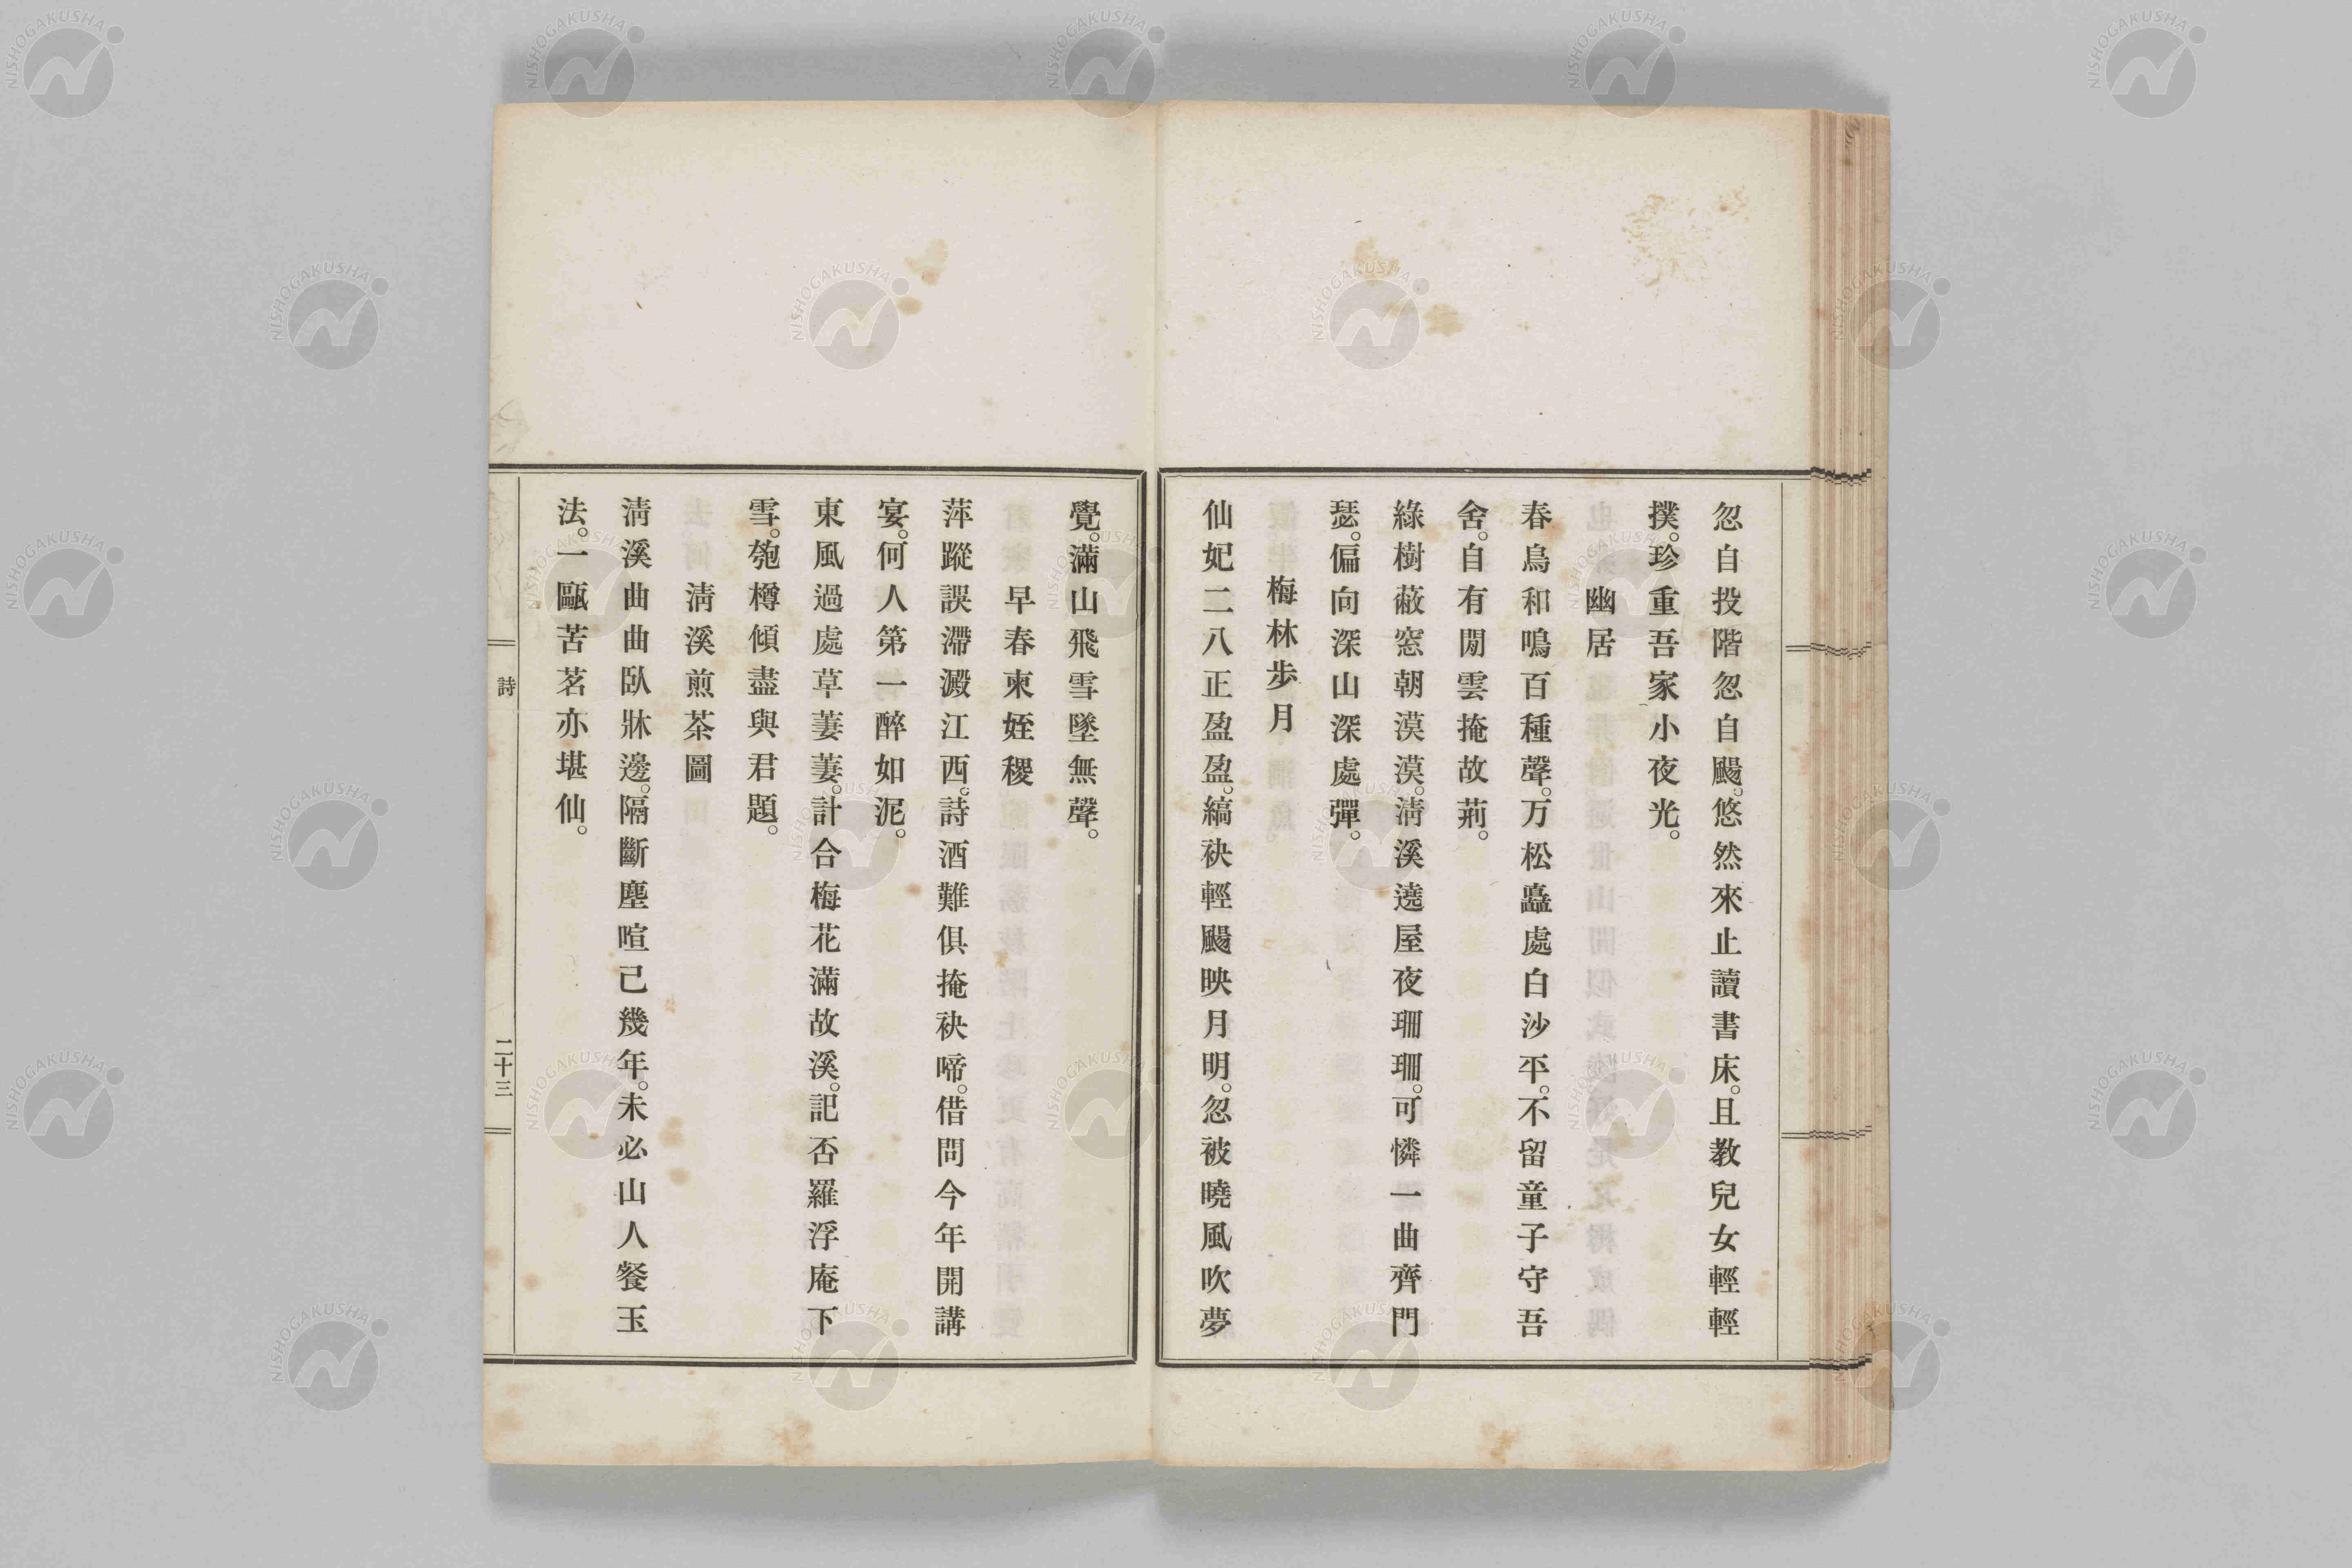 忽自投階忽自颺。悠然來止讀書床。且教兒女輕輕
撲。珍重吾家小夜光。
幽居
春鳥和鳴百種聲。万松矗處白沙平。不留童子守吾
舍。自有閒雲掩故荊。
綠樹蔽窓朝漠漠。淸溪遶屋夜珊珊。可憐一曲齊門
瑟。偏向深山深處彈。
梅林步月
仙妃二八正盈盈。縞袂輕颺映月明。忽被曉風吹夢
覺。滿山飛雪墜無聲。
早春柬姪稷
萍蹤誤滯澱江西。詩酒難俱掩袂啼。借問今年開講
宴。何人第一醉如泥。
東風過處草萋萋。計合梅花滿故溪。記否羅浮庵下
雪。匏樽傾盡與君題。
淸溪煎茶圖
淸溪曲曲臥牀邊。隔斷塵喧已幾年。未必山人餐玉
法。一甌苦茗亦堪仙。
詩
二十三
NISHOGAKUSHA